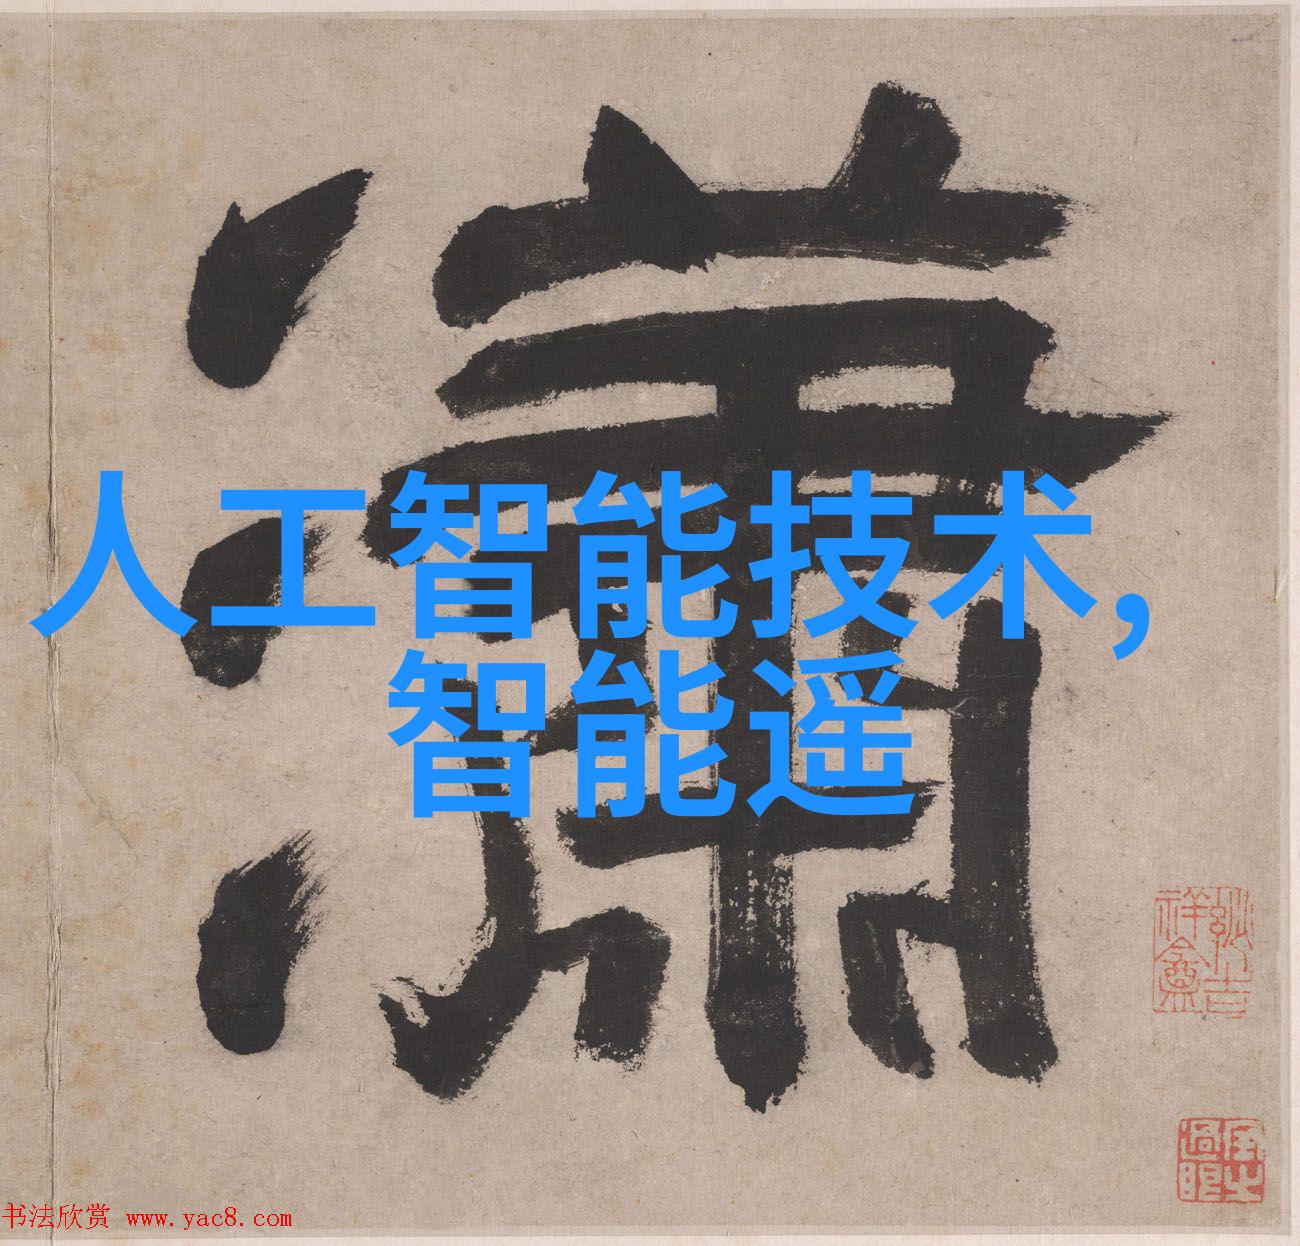 瀟
人工智能技术,
智能遥
书法欣赏 www.yac8.com